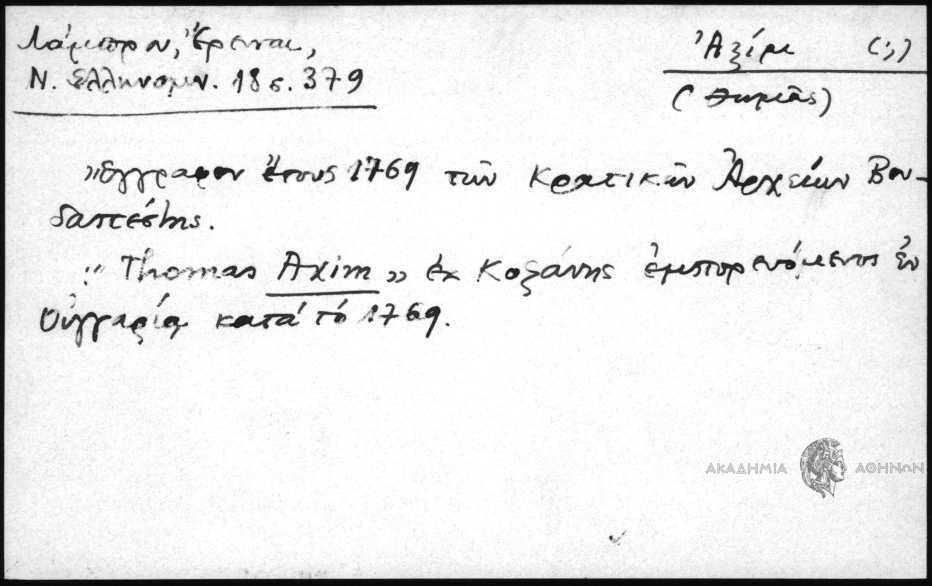 Λάμπρου, Ἔρευναι,
Ν. Ἑλληνομν. 18 σ. 379
Ἀξίμ (;)
(Θωμᾶς)
"Ἔγγραφον ἔτους 1769 τῶν Κρατικῶν Ἀρχείων Βου-
δαπέστης.
"Thomas Axim" ἐκ Κοζάνης ἐμπορευόμενος ἐν
Οὑγγαρίᾳ κατά τό 1769.
ΑΚΑΔΗΜΙΑ ΑΘΗΝΩΝ